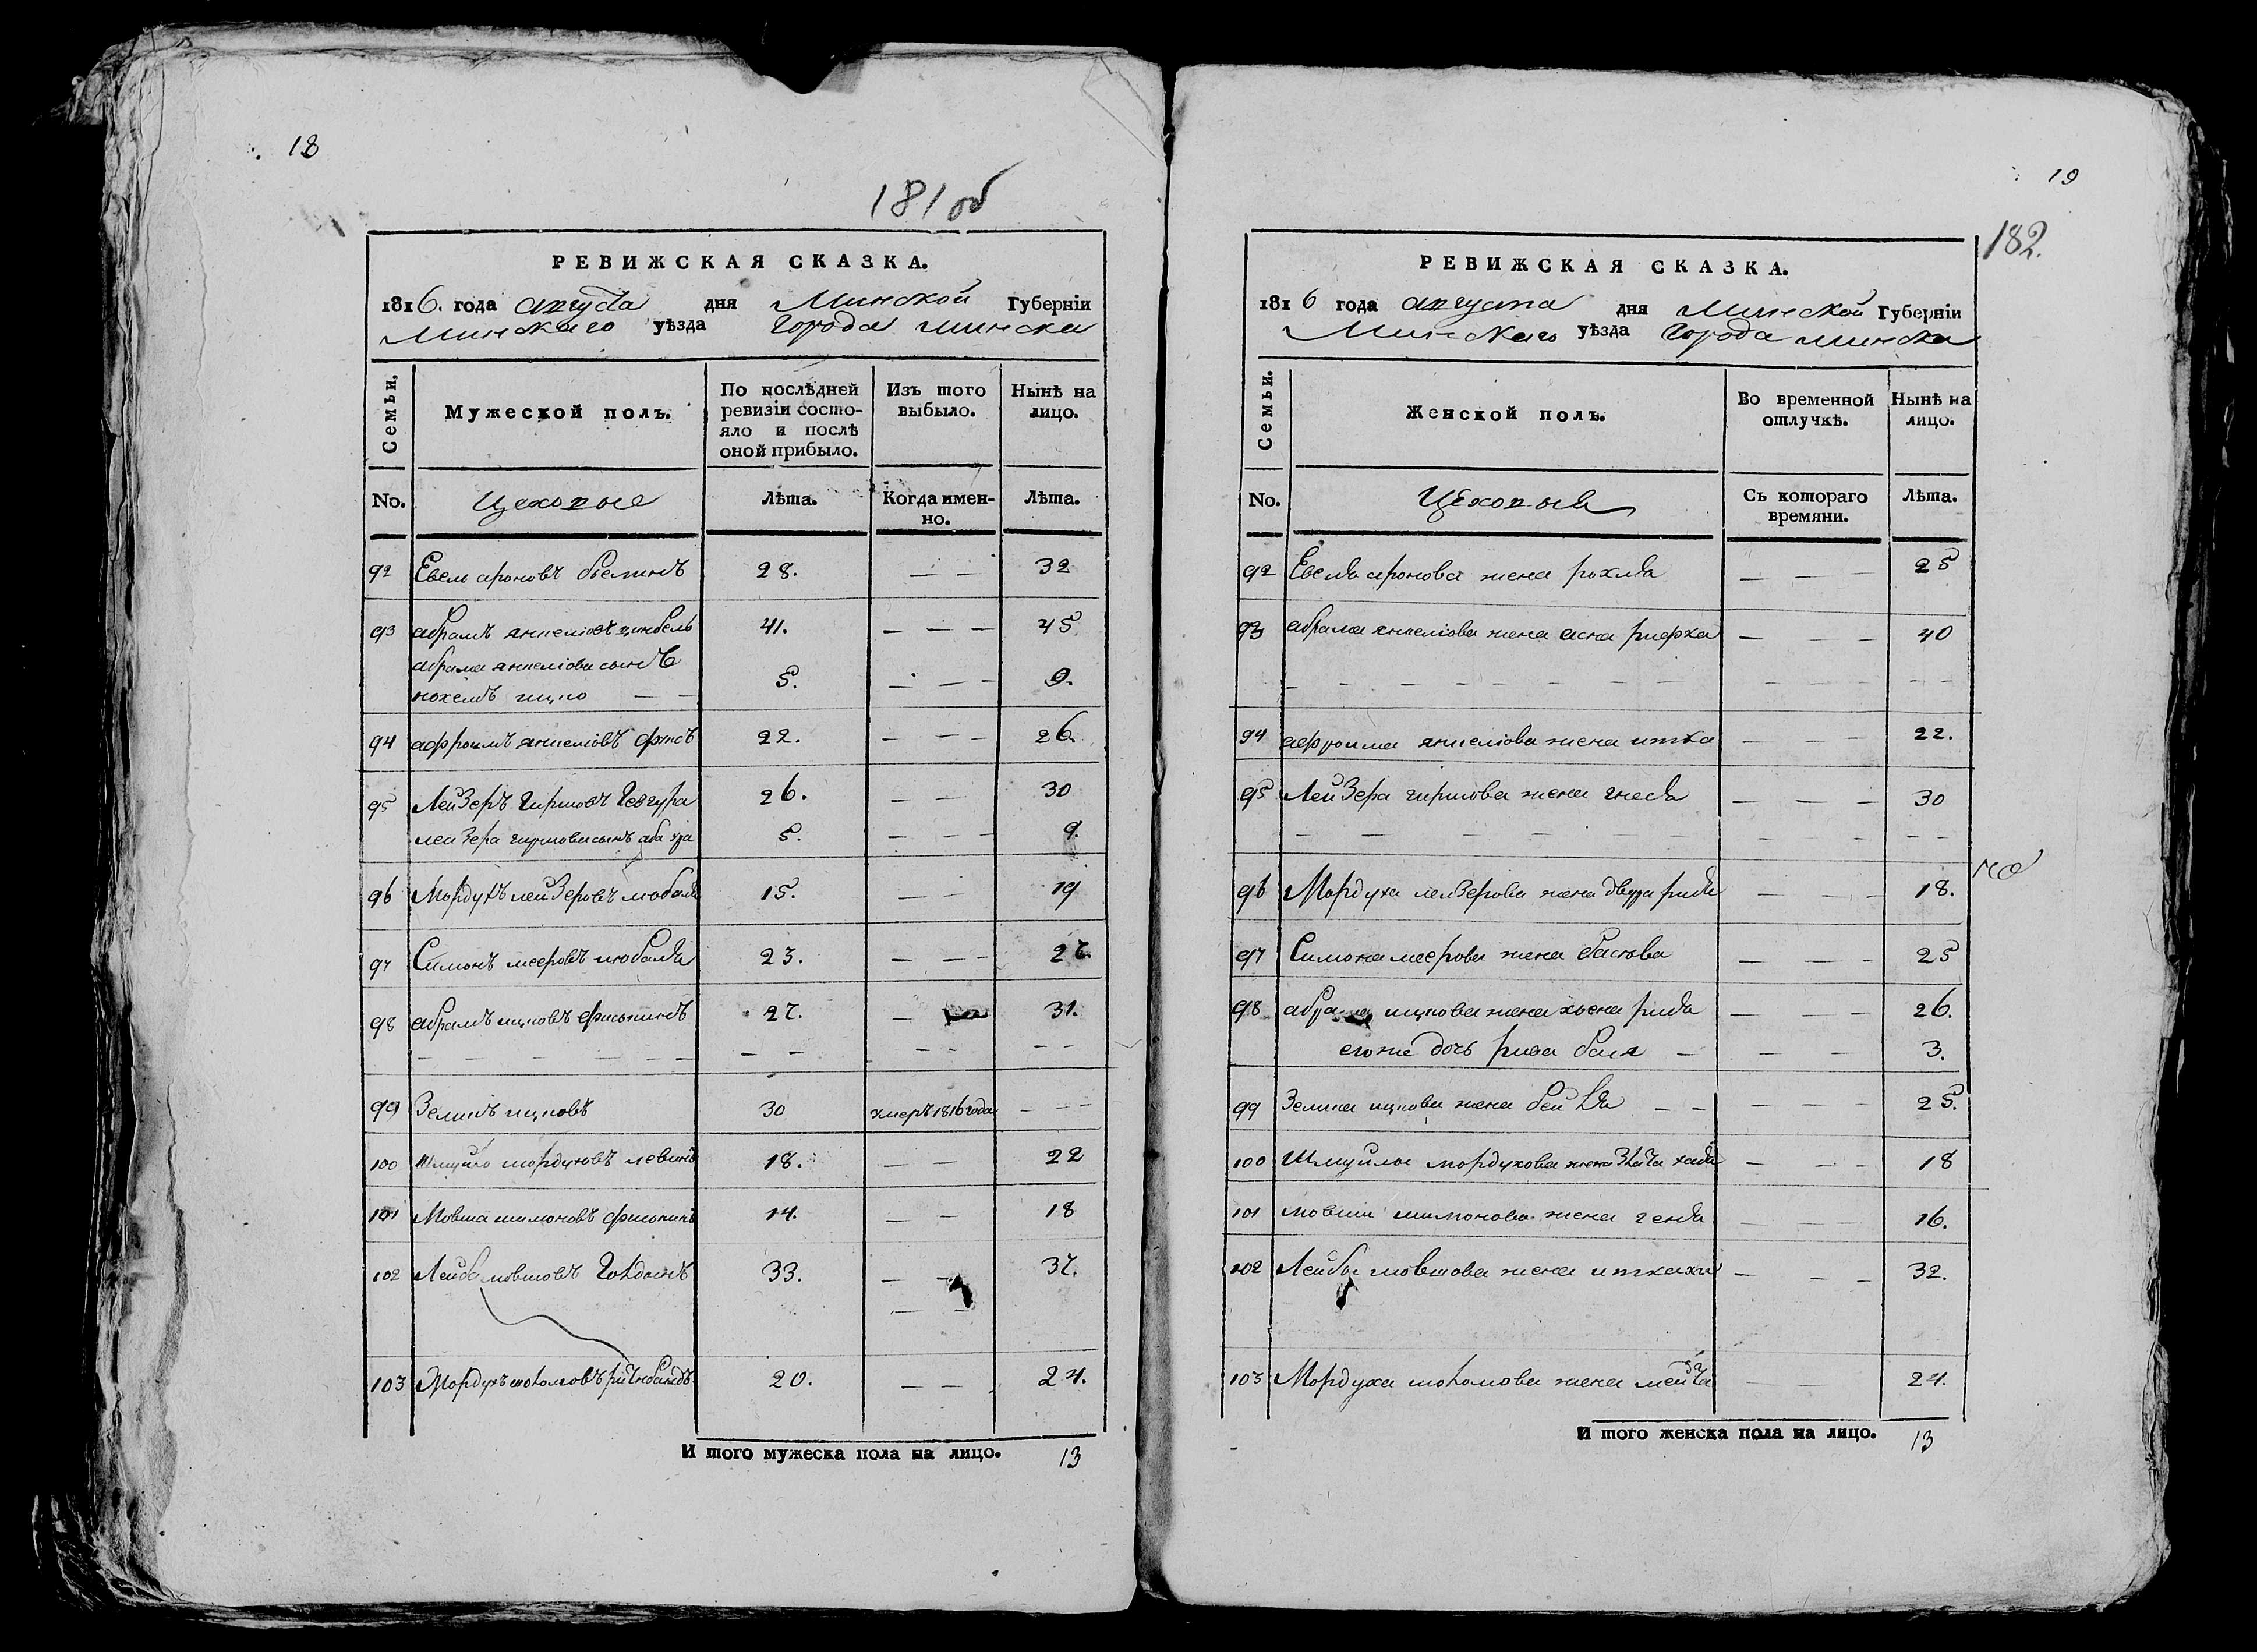 18
181 об
РЕВИЖСКАЯ СКАЗКА.
1816. года августа дня Минской Губерніи
Минскаго уѣзда Города Минска
Семьи. Мужеской полъ. По послѣдней ревизіи состояло и послѣ оной прибыло. Изъ того выбыло. Нынѣ на лицо.
No. Цеховые Лѣта. Когда именно. Лѣта.
92 Евель ароновъ 28. — — 32
93 абрамъ янкелiовъ 41. — — — 45
абрама янкелiова сынъ
нохемъ ицко — — 5. — — — 9.
94 афроимъ янкелiовъ фуксъ 22. — — — 26.
95 Лейзеръ гиршовъ 26. — — 30
лейзера гиршова сынъ аба 5. — — — 9.
96 Мордухъ лейзеровъ 15. — — 19
97 Симонъ мееровъ 23. — — — 27.
98 абрамъ ицковъ фишкинъ 27. — 31.
— — — — — — — — — — — —
99 Зеликъ ицковъ 30 умеръ 1816 года — — —
100 Шмуйло мордуховъ левинъ 18. — — 22
101 Мовша шимоновъ 14. — — 18
102 Лейба мовшовъ 33. — — 37.
— —
103 Мордухъ 20. — — 24.
И того мужеска пола на лицо. 13
19
182.
РЕВИЖСКАЯ СКАЗКА.
1816 года августа дня Минской Губерніи
Минскаго уѣзда Города Минска
Семьи. Женской полъ. Во временной отлучкѣ. Нынѣ на лицо.
No. Цеховыя Съ котораго времяни. Лѣта.
92 Евеля аронова жена рохля — — — 25
93 абрама янкелiова жена асна рифка — — — 40
— — — — — — — — — — — — —
94 афроима янкелiова жена итка — — — 22.
95 Лейзера гиршова жена гнеся — — — 30
— — — — — — — — — —
96 Мордуха лейзерова жена двера — — — 18.
97 Симона меерова жена басшева — — — 25
98 абрама ицкова жена хьена — — — 26.
его же дочь рива бася — — — 3.
99 Зелика ицкова жена — — — — — 25.
100 Шмуйлы мордухова жена — — — 18
101 мовши шимонова жена геня — — — 16.
102 Лейбы мовшова жена — — — 32.
103 Мордуха жена — — 24.
И того женска пола на лицо. 13